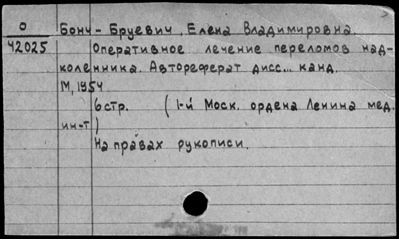 О Бонч-Бруевич, Елена Владимировна.
42025 Оперативное лечение переломов над-
коленника. Автореферат дисс... канд.
М, 1954
16 стр. (1-й Моск. ордена Ленина мед.
ин-т)
На правах рукописи.